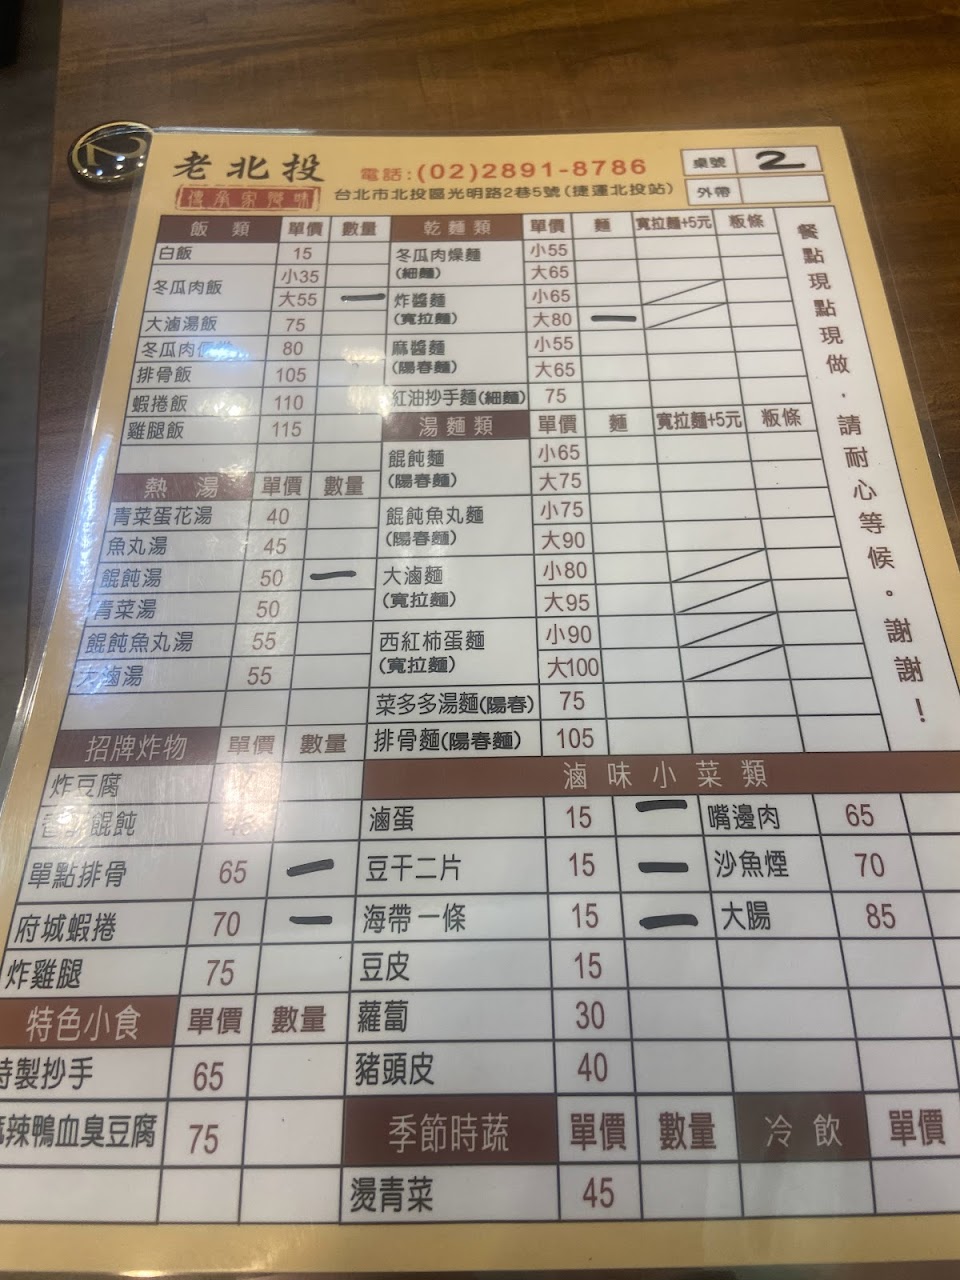 老北投
傳承家傳味
電話:(02)2891-8786
台北市北投區光明路2巷5號(捷運北投站)
桌號 2
外帶
飯類 單價 數量
白飯 15
冬瓜肉飯 小35
大55 一
大滷湯飯 75
冬瓜肉 80
排骨飯 105
蝦捲飯 110
雞腿飯 115
熱湯 單價 數量
青菜蛋花湯 40
魚丸湯 45
餛飩湯 50 一
青菜湯 50
餛飩魚丸湯 55
大滷湯 55
招牌炸物 單價 數量
炸豆腐
餛飩
單點排骨 65 一
府城蝦捲 70 一
炸雞腿 75
特色小食 單價 數量
特製抄手 65
麻辣鴨血臭豆腐 75
乾麵類 單價 麵 寬拉麵+5元 粄條
冬瓜肉燥麵 小55
(細麵) 大65
炸醬麵 小65
(寬拉麵) 大80 一
麻醬麵 小55
(陽春麵) 大65
紅油抄手麵(細麵) 75
湯麵類 單價 麵 寬拉麵+5元 粄條
餛飩麵 小65
(陽春麵) 大75
餛飩魚丸麵 小75
(陽春麵) 大90
大滷麵 小80
(寬拉麵) 大95
西紅柿蛋麵 小90
(寬拉麵) 大100
菜多多湯麵(陽春) 75
排骨麵(陽春麵) 105
滷味小菜類
滷蛋 15 一 嘴邊肉 65
豆干二片 15 一 沙魚煙 70
海帶一條 15 一 大腸 85
豆皮 15
蘿蔔 30
豬頭皮 40
季節時蔬 單價 數量 冷飲 單價
燙青菜 45
餐點現點現做．請耐心等候。謝謝！